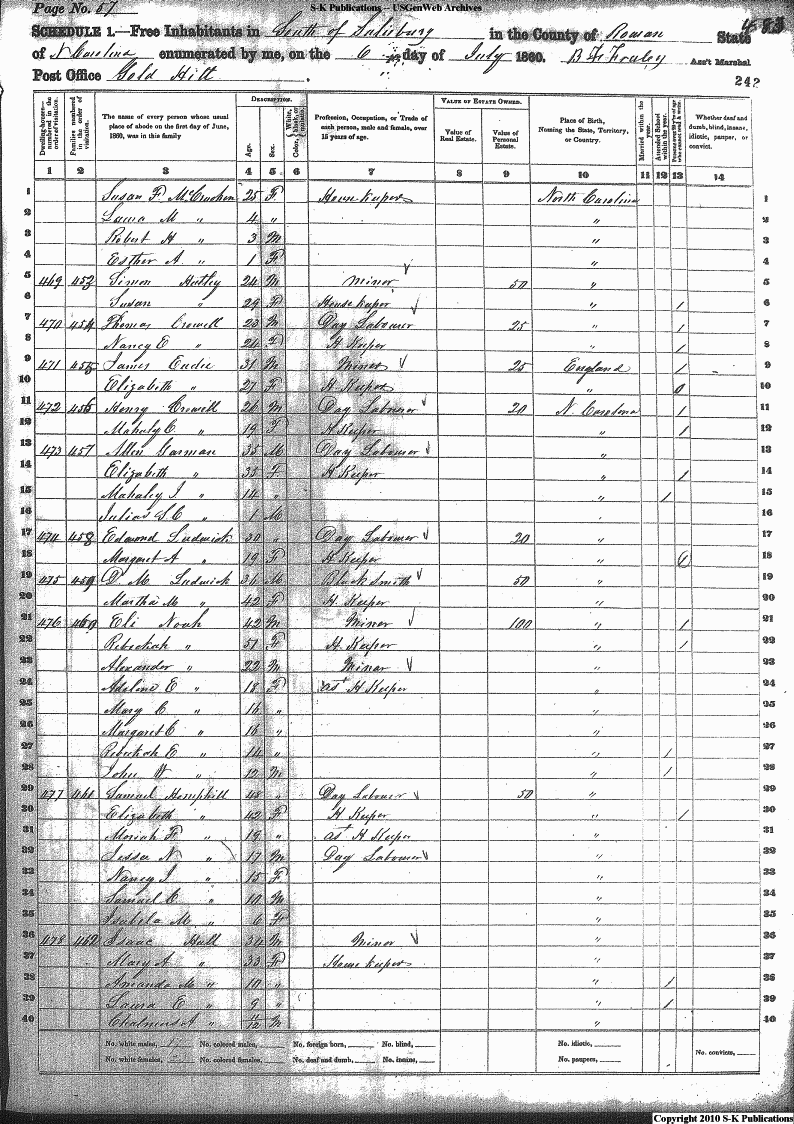 Page No. 57
S-K Publications – USGenWeb Archives
483
SCHEDULE 1.—Free Inhabitants in South of Salisbury in the County of Rowan State
of N Carolina enumerated by me, on the 6 day of July 1860. B F Fraley Ass't Marshal
Post Office Gold Hill
242
Dwelling-houses— numbered in the order of visitation.
Families numbered in the order of visitation.
The name of every person whose usual place of abode on the first day of June, 1860, was in this family
DESCRIPTION.
Age.
Sex.
Color, White, black, or mulatto.
Profession, Occupation, or Trade of each person, male and female, over 15 years of age.
VALUE OF ESTATE OWNED.
Value of Real Estate.
Value of Personal Estate.
Place of Birth, Naming the State, Territory, or Country.
Married within the year.
Attended School within the year.
Whether deaf and dumb, blind, insane, idiotic, pauper, or convict.
1 2 3 4 5 6 7 8 9 10 11 12 13 14
1 Susan F 25 F House Keeper North Carolina 1
2 Laura M " 4 " " 2
3 Robert H " 3 M " 3
4 Esther A " 1 F " 4
5 469 452 Simon Hatley 24 M Minor 50 " 5
6 Susan " 29 F House Keeper " 1 6
7 470 454 Thomas Crowell 23 M Day Labourer 25 " 1 7
8 Nancy E " 24 F H Keeper " 1 8
9 471 455 James Eudie 31 M Minor 25 England 1 9
10 Elizabeth " 27 F H Keeper " 10
11 472 456 Henry Crowell 26 M Day Labourer 20 N Carolina 1 11
12 Mahaly C " 19 F H Keeper " 1 12
13 473 457 Allen Garman 35 M Day Labourer " 13
14 Elizabeth " 35 F H Keeper " 1 14
15 Mahaley J " 14 " " 1 15
16 Julius S C " 1 M " 16
17 474 458 Edmond Ludwick 30 " Day Labourer 20 " 17
18 Margaret A " 19 F H Keeper " 1 18
19 475 459 D M Ludwick 36 M Black Smith 50 " 19
20 Martha M " 42 F H Keeper " 20
21 476 460 Eli Noah 42 M Minor 100 " 1 21
22 Rebeckah " 51 F H Keeper " 1 22
23 Alexander " 22 M Minor " 23
24 Adeline E " 18 F ast H Keeper " 24
25 Mary C " 16 " " 25
26 Margaret C " 16 " " 26
27 Rebeckah E " 14 " " 1 27
28 John W " 12 M " 1 28
29 477 461 Samuel Hemphill 45 " Day Labourer 50 " 29
30 Elizabeth " 42 F H Keeper " 1 30
31 Moriah F " 19 " ast H Keeper " 31
32 Jessee N " 17 M Day Labourer " 32
33 Nancy J " 15 F " 33
34 Samuel C " 10 M " 34
35 Isabela M " 6 F " 35
36 478 462 Isaac Hall 34 M Minor " 36
37 Mary A " 33 F House Keeper " 37
38 Amanda M " 10 " " 1 38
39 Laura E " 9 " " 1 39
40 Chalmers A " 11/12 M " 40
No. white males, No. colored males, No. foreign born, No. blind, No. idiotic, No. convicts,
No. white females, No. colored females, No. deaf and dumb, No. insane, No. paupers,
Copyright 2010 S-K Publications